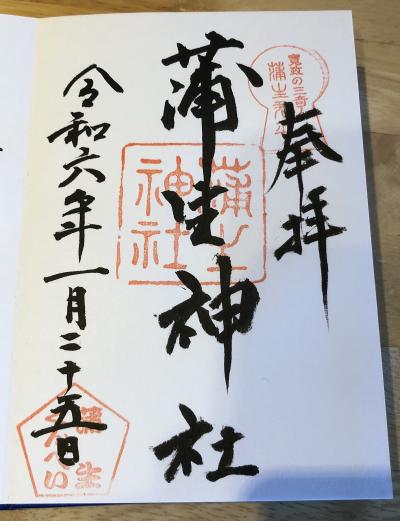 奉拝
蒲生神社
令和六年一月二十五日
寛政の三奇
蒲生
蒲生
神社
蒲生